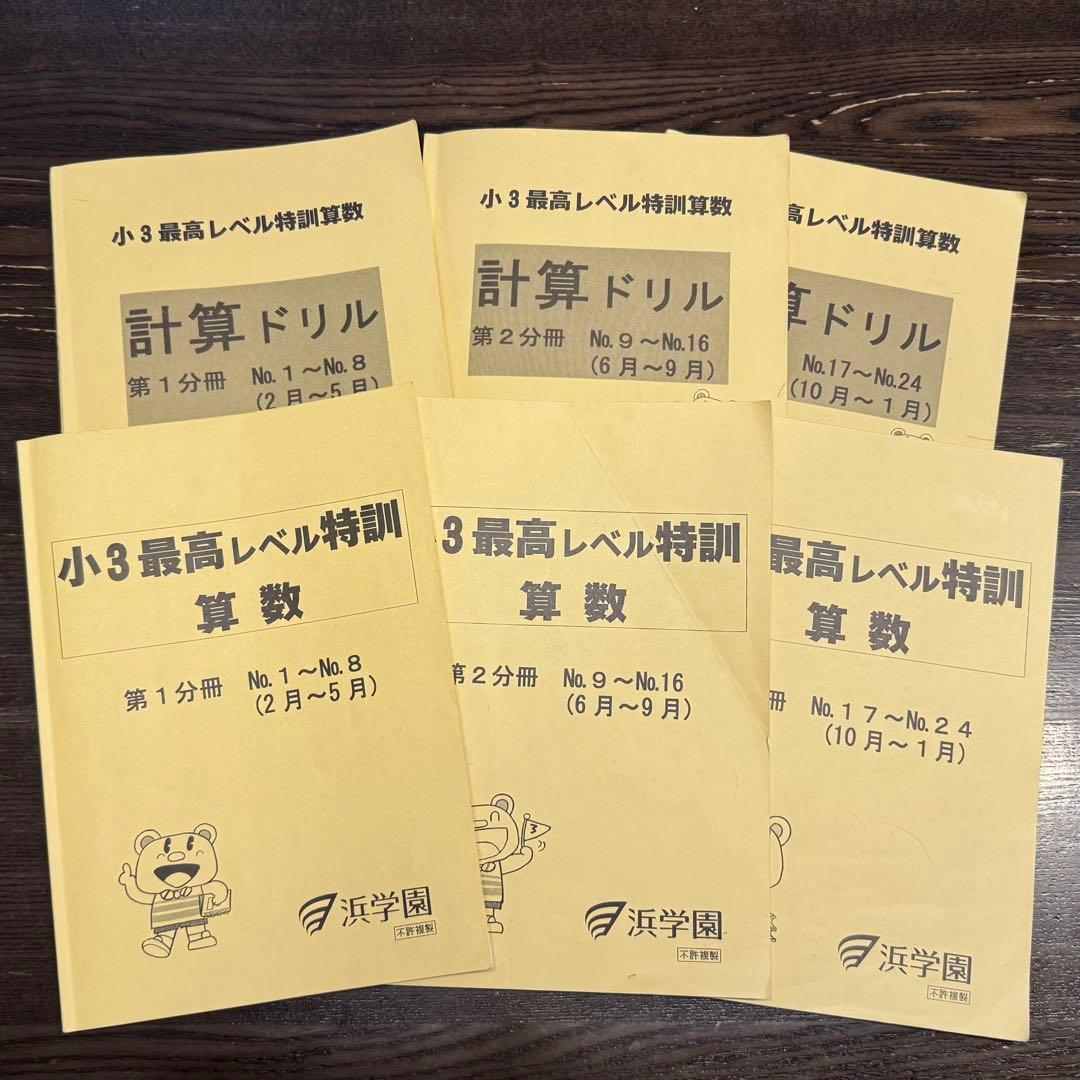 小3最高レベル特訓算数
計算ドリル
第1分冊 No.1～No.8
(2月～5月)
小3最高レベル特訓算数
計算ドリル
第2分冊 No.9～No.16
(6月～9月)
高レベル特訓算数
算ドリル
No.17～No.24
(10月～1月)
小3最高レベル特訓
算数
第1分冊 No.1～No.8
(2月～5月)
浜学園
不許複製
3最高レベル特訓
算数
第2分冊 No.9～No.16
(6月～9月)
3
浜学園
不許複製
最高レベル特訓
算数
冊 No.17～No.24
(10月～1月)
浜学園
不許複製